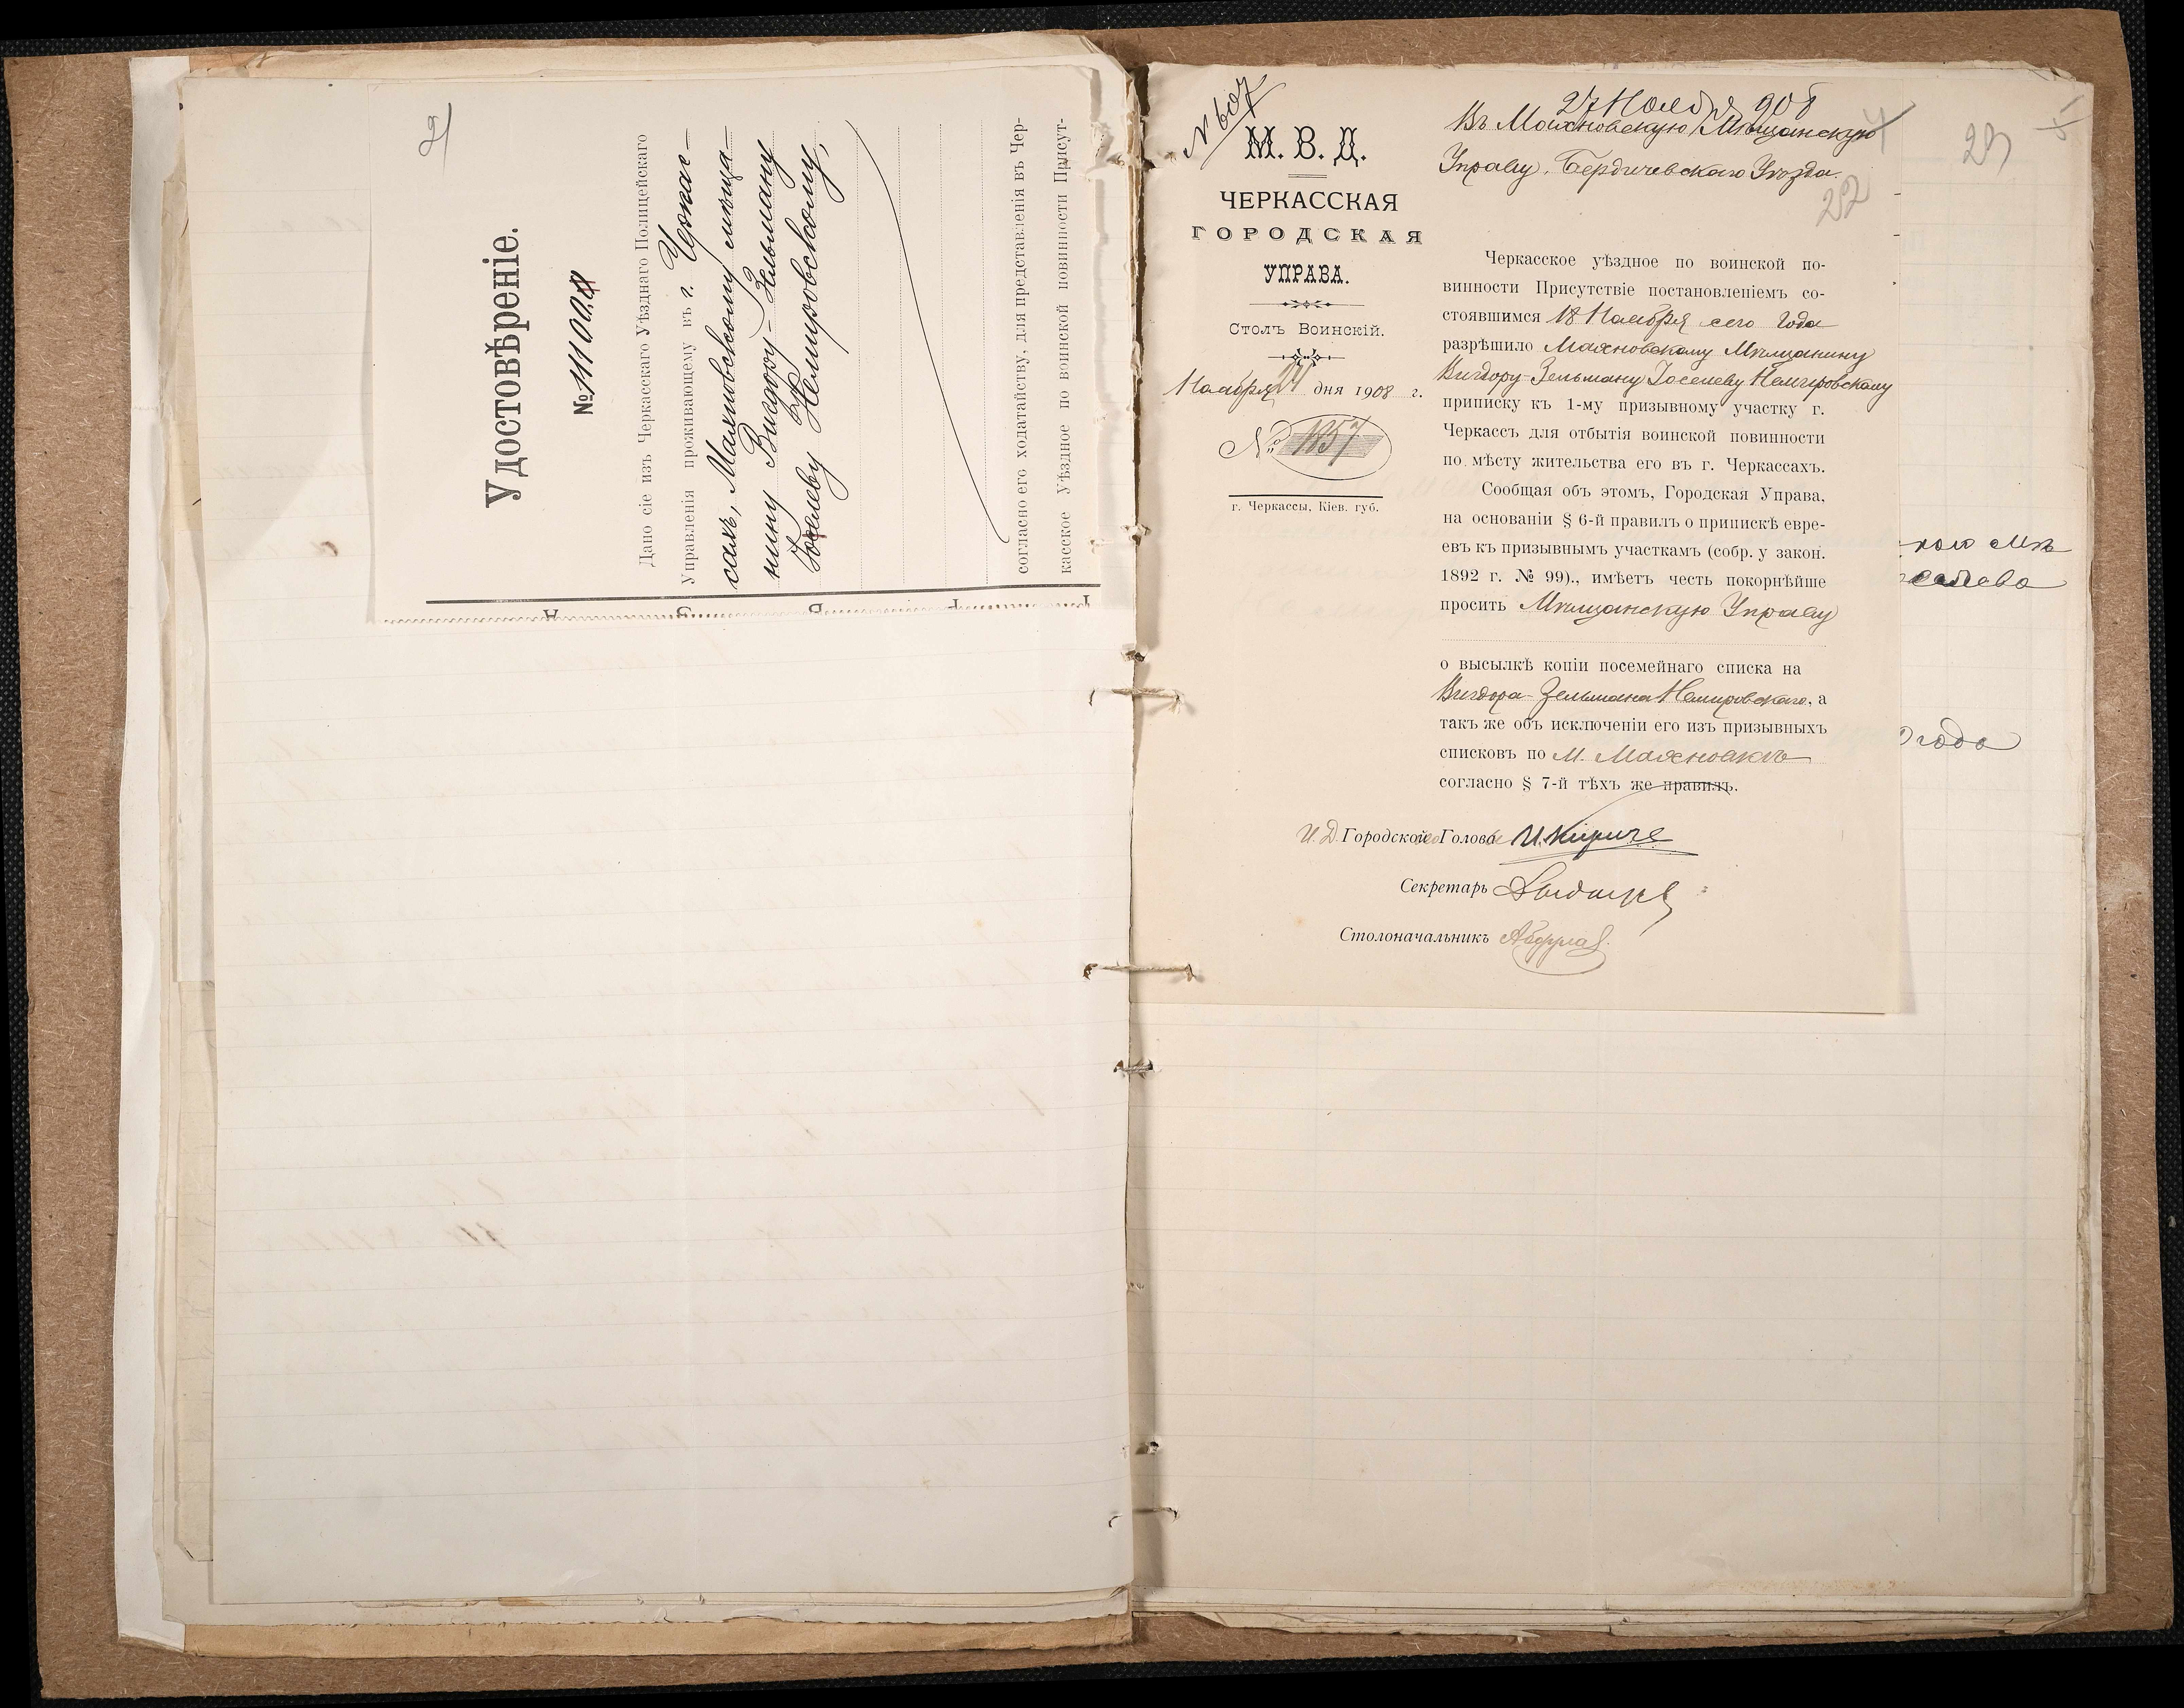 21
Удостовѣреніе.
№ 11100.
Дано сіе изъ Черкасскаго Уѣзднаго Полицейскаго
Управленія проживающему въ г. Черкас-
сахъ, Махновскому мѣща-
нину Вигдору-Зельману
Іоселеву Немировскому,
согласно его ходатайству, для представленія въ Чер-
касское Уѣздное по воинской повинности Присут-
N 607
М. В. Д.
ЧЕРКАССКАЯ
ГОРОДСКАЯ
УПРАВА.
Столъ Воинскій.
Ноября 24 дня 1908 г.
№ 1857
г. Черкассы, Кіев. губ.
27 Ноября 908
Въ Махновскую Мѣщанскую
Управу, Бердичевскаго Уѣзда.
22
Черкасское уѣздное по воинской по-
винности Присутствіе постановленіемъ со-
стоявшимся 18 Ноября сего года
разрѣшило Махновскому Мѣщанину
Вигдору-Зельману Іоселеву Немировскому
приписку къ 1-му призывному участку г.
Черкассъ для отбытія воинской повинности
по мѣсту жительства его въ г. Черкассахъ.
Сообщая объ этомъ, Городская Управа,
на основаніи § 6-й правилъ о припискѣ евре-
евъ къ призывнымъ участкамъ (собр. у закон.
1892 г. № 99)., имѣетъ честь покорнѣйше
просить Мѣщанскую Управу
о высылкѣ копіи посемейнаго списка на
Вигдора-Зельмана Немировскаго, а
такъ же объ исключеніи его изъ призывныхъ
списковъ по м. Махновкѣ
согласно § 7-й тѣхъ же правилъ.
И. Д. Городской Голова
Секретарь
Столоначальникъ
23
года